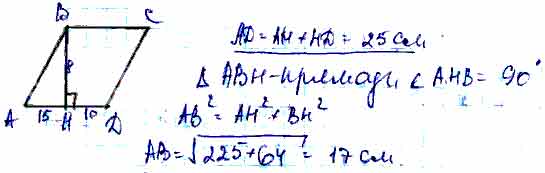 B C
8
A 15 H 10 D
AD = AH + HD = 25 см
Δ ABH - прямоуг. ∠ AHB = 90°
AB² = AH² + BH²
AB = √225+64 = 17 см.